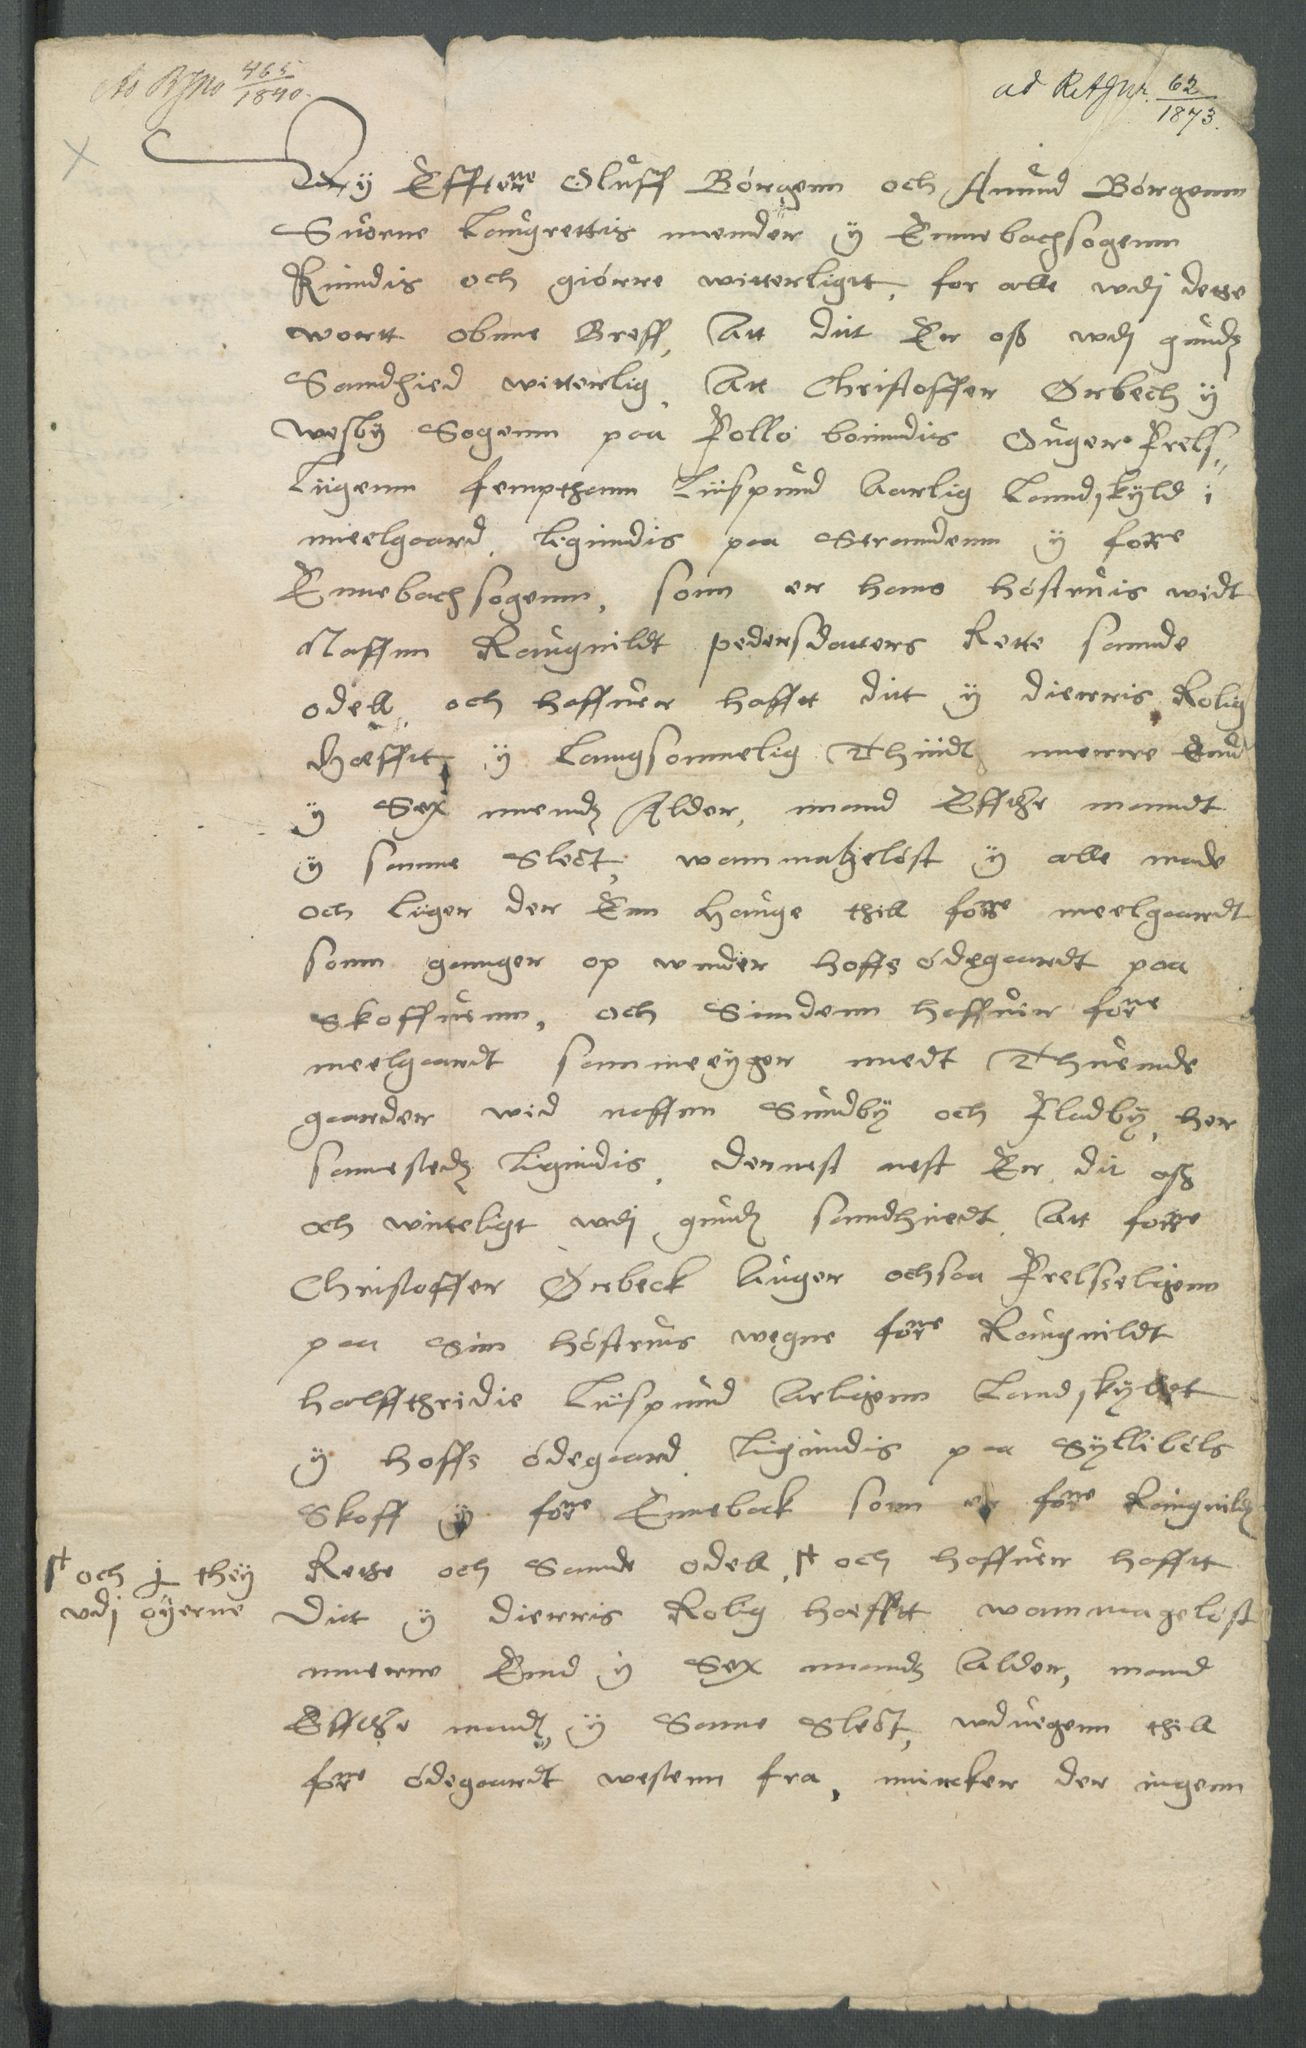 Ao RJno 465/1840.
ad RAJnr. 62/1873.
Wy Efftenne Oluff Börgenn och Amund Börgenn
Suorne Laugrettis mender ÿ Ennebachsogenn
Kiendis och giörre witterligtt, for alle wdj dette
wortt obnne Breff, Att ditt Er oß wdj gudz
Sandhied witterlig, Att Christoffer Örbech ÿ
wesby Sogenn paa Follo boiendis Ouger Frels¸¸
Ligenn sempthann Liispund Aarlig Landskyld i
meelgaard, legindis paa Strandenn ÿ forne
Ennebachsogenn, som er hans höstruis widt
Naffnn Raugnildt pedersdatters Rette sannde
odell och haffuer hafft ditt ÿ dierris Rolig
hæfftt, ÿ Langsommelig Thiidt meere End
ÿ Sex mendz Alder, mand Effther manndt
ÿ samme Slect, wanmageløst ÿ alle made
och Liger der Enn Hauge thill forne meelgaardt
som gannger op wnder hoffs ödegaardt paa
Skoffuenn, och Sindenn haffuer forne
meelgaardt sammeeyger medt Thuende
gaarder wid naffnn Sundby och Fladbÿ, her
samestedz Ligindis, Dernest nest Er dit oß
och witteligt wdj gudz sandhiedt Att forne
Christoffer Örbeck Auger ochsaa Frelsseligenn
paa Sin höstruis wegne forne Raugnildt
halffthridie Liispund Aarligenn Landskyldt
ÿ hoffs ödegaard Ligindis paa Sylliböls
Skoff ÿ forne Enneback som er forne Raugnildz
Rette och Sande odell, och haffuer hafftt
och i thÿ
vdj öÿerne
Ditt ÿ dierris Rolig hæfftt wanmageløst
meere End ÿ Sex mandz Alder, mand
Effther mandz ÿ Same Slect, wduegenn thill
forne ödegaardt westenn fra, mircker der ingenn